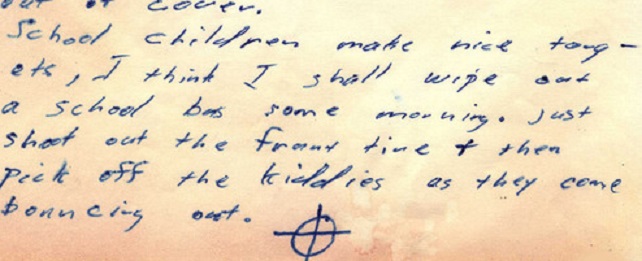 out of cover.
School children make nice targ-
ets, I think I shall wipe out
a school bus some morning. Just
shoot out the front tire + then
pick off the kiddies as they come
bouncing out.